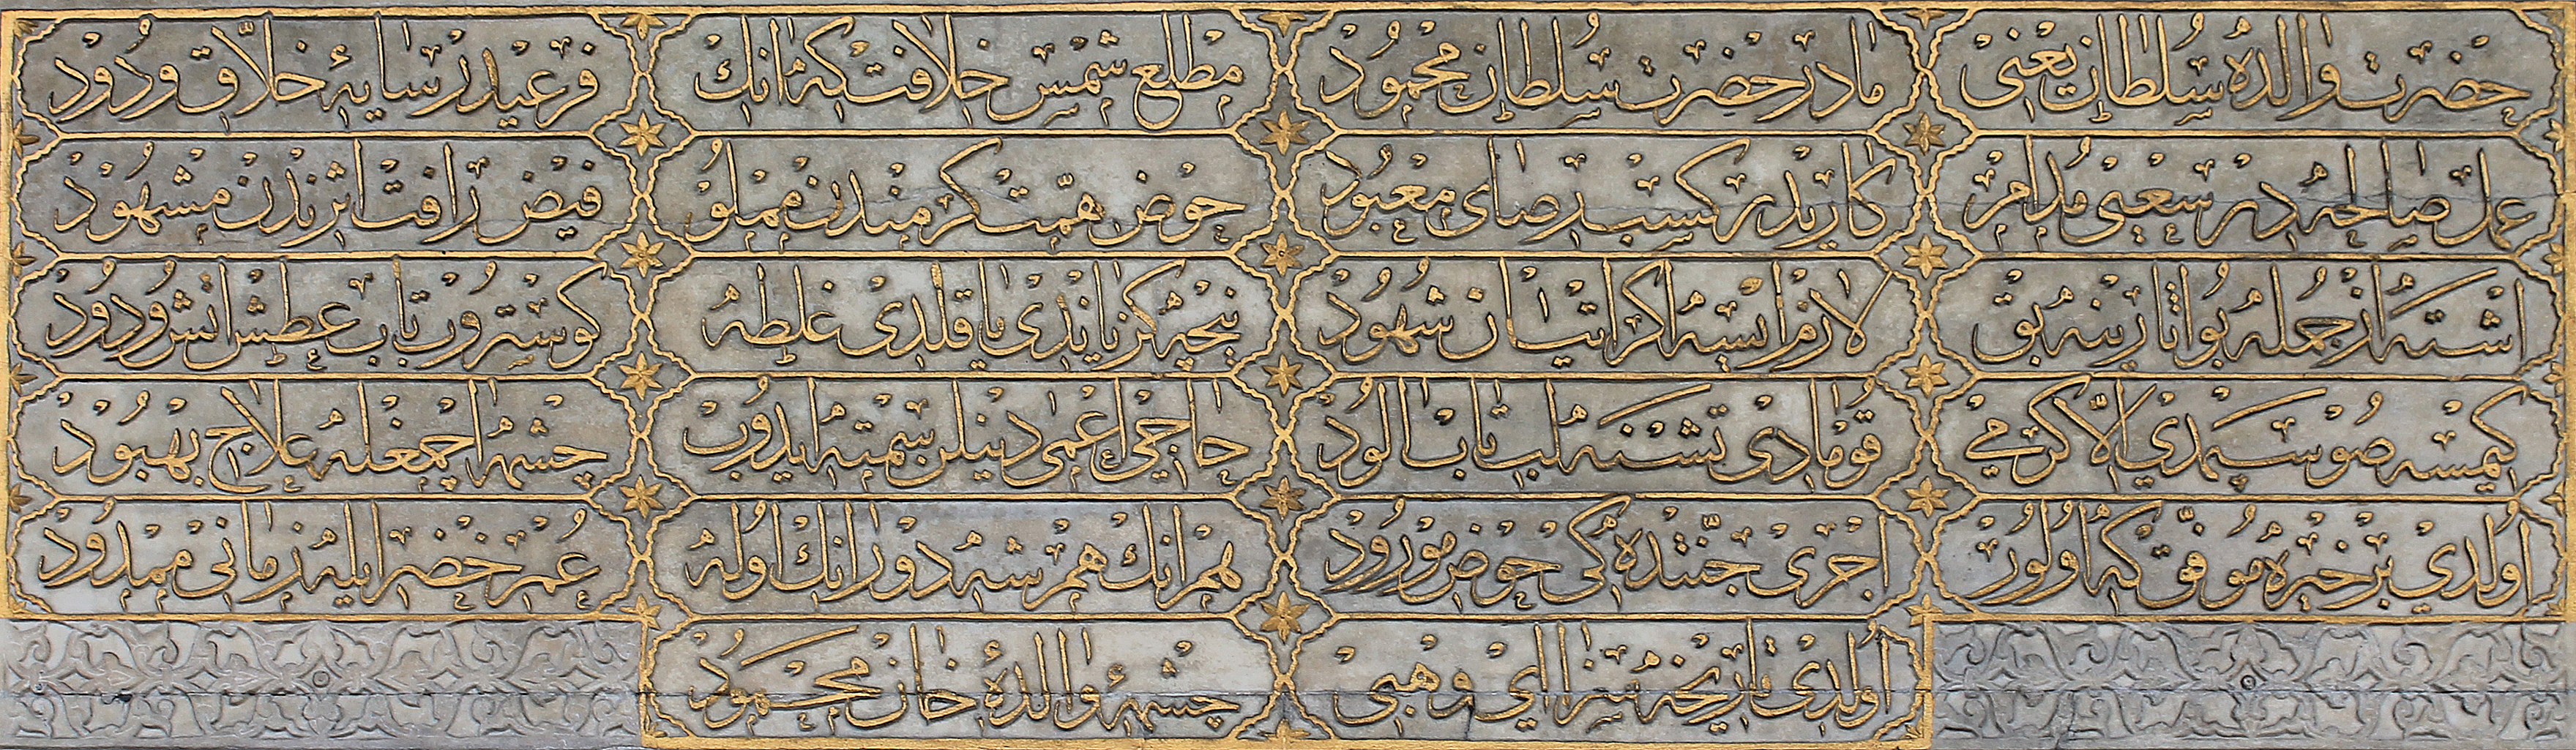 حضرت والده سلطان يعنى مادر حضرت سلطان محمود مطلع شمس خلافت كه انك فر عيدر سايهٔ خلاق ودود
عمل صالحه در سعيى مدام كاريدر كسب رضاى معبود حوض همتكرمندن مملو فيض رأفت اثرندن مشهود
اشته از جمله بو اثارينه بق لازم ايسه اكر اتيان شهود نيچه كز ياندى ياقلدى غلطه كوستروب تاب عطش انشرودود
كيمسه صو سپمدى الا كرمى قومادى تشنه لب تاب الود حاجى اعمى دينلن سمته ايدوب چشمه اچمغله علاج بهبود
اولدى بر خيره موفق كه اولور اجرى جنتده كى حوض مورود هم انك هم شه دورانك اوله عمر خضر ايله زمانى ممدود
اولدى تاريخه سزا اى وهبى چشمهٔ والدهٔ خان محمود